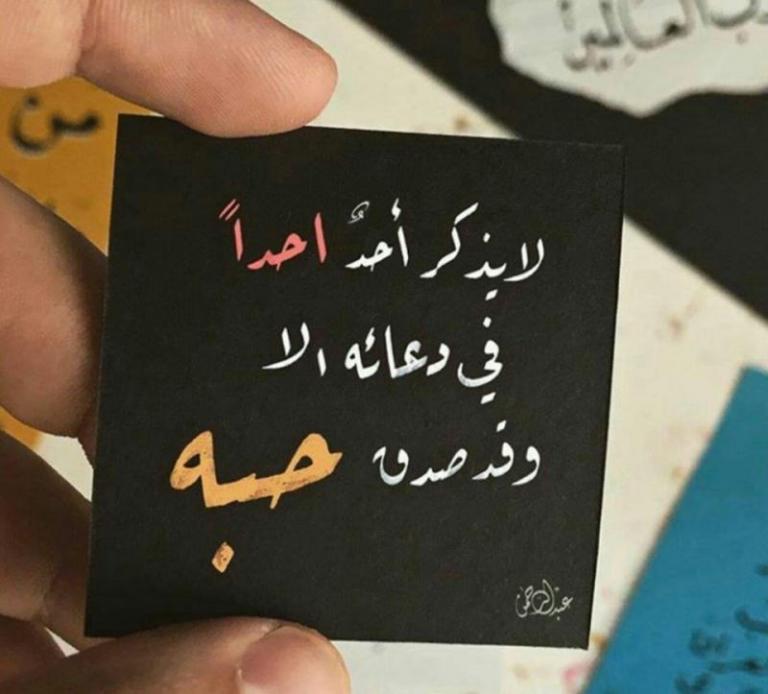 لا يذكر أحدٌ احداً
في دعائه الا
وقد صدق حبه
عبدالرحمن
من
العالمين